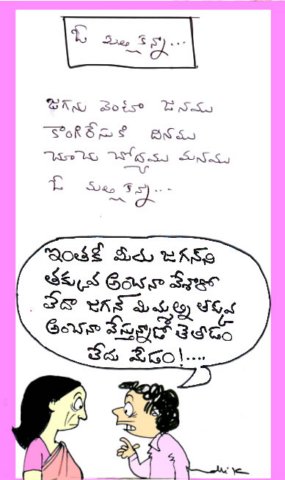 ఓ మల్లి కన్నా...
జగను వెంటా జనము
కాంగిరేసుకి దినము
చూచు చోద్యము మనము
ఓ మల్లి కన్నా...
ఇంతకీ మీరు జగన్‌ని
తక్కువ అంచనా వేశారో
లేదా జగన్ మిమ్మల్ని తక్కువ
అంచనా వేస్తున్నాడో తెలీడం
లేదు మేడం!....